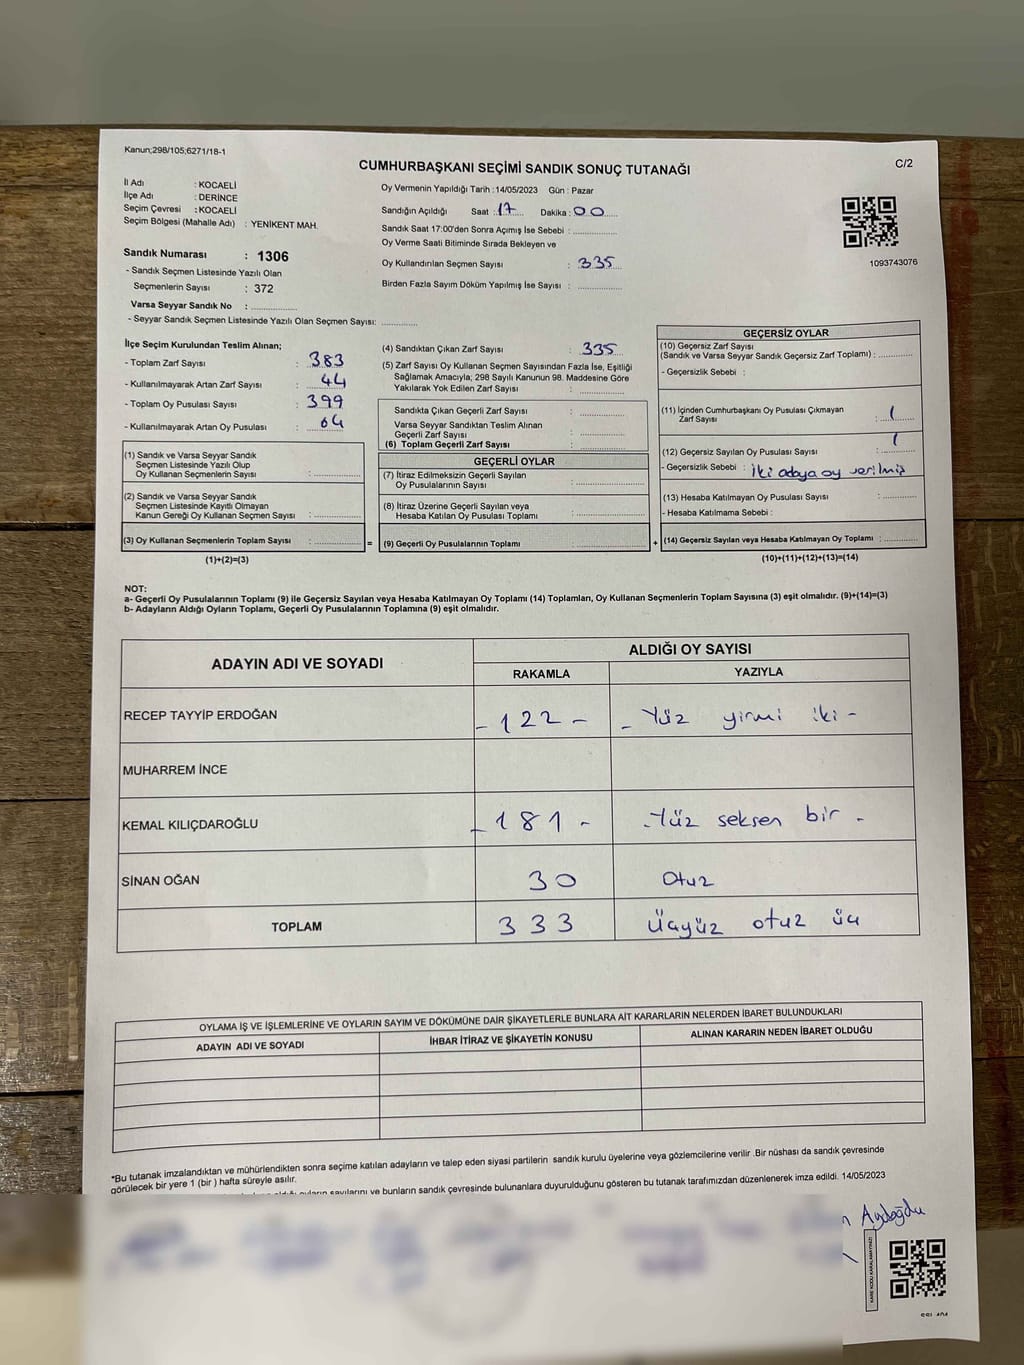 Kanun;298/105;6271/18-1
CUMHURBAŞKANI SEÇİMİ SANDIK SONUÇ TUTANAĞI
C/2
İl Adı : KOCAELİ
İlçe Adı : DERİNCE
Seçim Çevresi : KOCAELİ
Seçim Bölgesi (Mahalle Adı) : YENİKENT MAH.
Oy Vermenin Yapıldığı Tarih :14/05/2023 Gün : Pazar
Sandığın Açıldığı Saat :17 Dakika:00
Sandık Saat 17:00'den Sonra Açımış İse Sebebi :
Oy Verme Saati Bitiminde Sırada Bekleyen ve
Oy Kullandırılan Seçmen Sayısı : 335
Birden Fazla Sayım Döküm Yapılmış İse Sayısı :
1093743076
Sandık Numarası : 1306
- Sandık Seçmen Listesinde Yazılı Olan
Seçmenlerin Sayısı : 372
Varsa Seyyar Sandık No :
- Seyyar Sandık Seçmen Listesinde Yazılı Olan Seçmen Sayısı:
İlçe Seçim Kurulundan Teslim Alınan;
- Toplam Zarf Sayısı : 383
- Kullanılmayarak Artan Zarf Sayısı : 44
- Toplam Oy Pusulası Sayısı : 399
- Kullanılmayarak Artan Oy Pusulası : 64
(1) Sandık ve Varsa Seyyar Sandık
Seçmen Listesinde Yazılı Olup
Oy Kullanan Seçmenlerin Sayısı :
(2) Sandık ve Varsa Seyyar Sandık
Seçmen Listesinde Kayıtlı Olmayan
Kanun Gereği Oy Kullanan Seçmen Sayısı :
(3) Oy Kullanan Seçmenlerin Toplam Sayısı :
=
(1)+(2)=(3)
(4) Sandıktan Çıkan Zarf Sayısı : 335
(5) Zarf Sayısı Oy Kullanan Seçmen Sayısından Fazla İse, Eşitliği
Sağlamak Amacıyla; 298 Sayılı Kanunun 98. Maddesine Göre
Yakılarak Yok Edilen Zarf Sayısı :
Sandıkta Çıkan Geçerli Zarf Sayısı :
Varsa Seyyar Sandıktan Teslim Alınan
Geçerli Zarf Sayısı :
(6) Toplam Geçerli Zarf Sayısı :
GEÇERLİ OYLAR
(7) İtiraz Edilmeksizin Geçerli Sayılan
Oy Pusulalarının Sayısı :
(8) İtiraz Üzerine Geçerli Sayılan veya
Hesaba Katılan Oy Pusulası Toplamı :
(9) Geçerli Oy Pusulalarının Toplamı :
+
GEÇERSİZ OYLAR
(10) Geçersiz Zarf Sayısı
(Sandık ve Varsa Seyyar Sandık Geçersiz Zarf Toplamı) :
- Geçersizlik Sebebi :
(11) İçinden Cumhurbaşkanı Oy Pusulası Çıkmayan
Zarf Sayısı : 1
(12) Geçersiz Sayılan Oy Pusulası Sayısı : 1
- Geçersizlik Sebebi : İki adaya oy verilmiş
(13) Hesaba Katılmayan Oy Pusulası Sayısı :
- Hesaba Katılmama Sebebi :
(14) Geçersiz Sayılan veya Hesaba Katılmayan Oy Toplamı :
(10)+(11)+(12)+(13)=(14)
NOT:
a- Geçerli Oy Pusulalarının Toplamı (9) ile Geçersiz Sayılan veya Hesaba Katılmayan Oy Toplamı (14) Toplamları, Oy Kullanan Seçmenlerin Toplam Sayısına (3) eşit olmalıdır. (9)+(14)=(3)
b- Adayların Aldığı Oyların Toplamı, Geçerli Oy Pusulalarının Toplamına (9) eşit olmalıdır.
ADAYIN ADI VE SOYADI
ALDIĞI OY SAYISI
RAKAMLA YAZIYLA
RECEP TAYYİP ERDOĞAN - 122 - - Yüz yirmi iki -
MUHARREM İNCE
KEMAL KILIÇDAROĞLU - 181 - - Yüz seksen bir -
SİNAN OĞAN 30 Otuz
TOPLAM 333 Üçyüz otuz üç
OYLAMA İŞ VE İŞLEMLERİNE VE OYLARIN SAYIM VE DÖKÜMÜNE DAİR ŞİKAYETLERLE BUNLARA AİT KARARLARIN NELERDEN İBARET BULUNDUKLARI
ADAYIN ADI VE SOYADI İHBAR İTİRAZ VE ŞİKAYETİN KONUSU ALINAN KARARIN NEDEN İBARET OLDUĞU
*Bu tutanak imzalandıktan ve mühürlendikten sonra seçime katılan adayların ve talep eden siyasi partilerin sandık kurulu üyelerine veya gözlemcilerine verilir .Bir nüshası da sandık çevresinde
görülecek bir yere 1 (bir ) hafta süreyle asılır.
sayılarını ve bunların sandık çevresinde bulunanlara duyurulduğunu gösteren bu tutanak tarafımızdan düzenlenerek imza edildi. 14/05/2023
Aydoğdu
KARE KODU KARALAMAYINIZ!